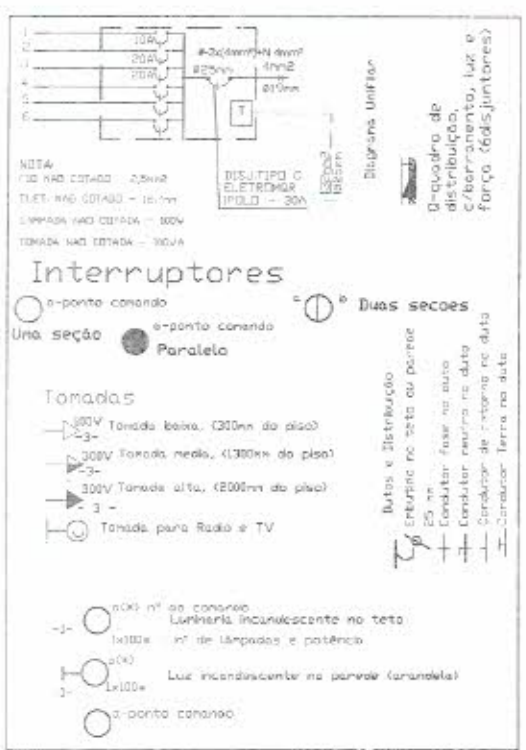 1
2
3
4
5
6
10A
20A
20A
#-2x(4mm²)+N 4mm²
4mm2
Ø25mm
Ø19mm
T
DISJ.TIPO C
ELETROMAR
1POLO - 30A
Diagrama Unifilar
Q-quadro de
distribuição,
c/barramento, luz e
força (6disjuntores)
NOTA:
FIO NAO COTADO - 2,5mm2
DUET. NAO COTADO -
LAMPADA NAO COTADA - 100W
TOMADA NAO COTADA - 100VA
Interruptores
a-ponto comando
Uma seção
a-ponto comando
Paralelo
a b Duas secoes
Tomadas
300V Tomada baixa, (300mm do piso)
-3-
300V Tomada media, (1300mm do piso)
-3-
300V Tomada alta, (2000mm do piso)
- 3 -
Tomada para Radio e TV
Dutos e Distribuição
Embutido no teto ou parede
25 mm
Condutor fase no duto
Condutor neutro no duto
Condutor de retorno no duto
Condutor Terra no duto
a(*) nº do comando
-1- Luminaria incandescente no teto
1x100w nº de lâmpadas e potência
a(*)
Luz incandescente na parede (arandela)
1- 1x100w
a-ponto comando